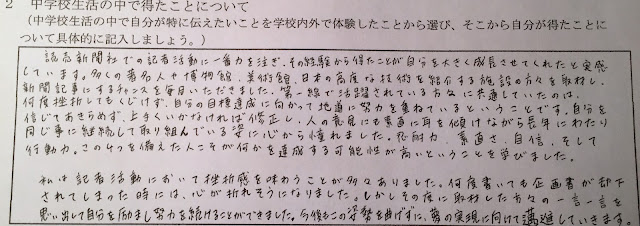 2 中学校生活の中で得たことについて
（中学校生活の中で自分が特に伝えたいことを学校内外で体験したことから選び、そこから自分が得たことに
ついて具体的に記入しましょう。）
読売新聞社での記者活動に一番力を注ぎ、その経験から得たことが自分を大きく成長させてくれたと実感
しています。多くの著名人や博物館、美術館、日本の高度な技術を紹介する施設の方々を取材し、
新聞記事にするチャンスを毎月いただきました。第一線で活躍されている方々に共通していたのは、
何度挫折してもくじけず、自分の目標達成に向かって地道に努力を重ねているということです。自分を
信じてあきらめず、上手くいかなければ修正し、人の意見にも素直に耳を傾けながら長年にわたり
同じ事に継続して取り組んでいる姿に心から憧れました。忍耐力、素直さ、自信、そして
行動力。この4つを備えた人こそが何かを達成する可能性が高いということを学びました。
私は記者活動において挫折感を味わうことが多々ありました。何度書いても企画書が却下
されてしまった時には、心が折れそうになりました。しかしその度に取材した方々の一言一言を
思い出して自分を励まし努力を続けることができました。今後もこの姿勢を曲げずに、夢の実現に向けて邁進していきます。